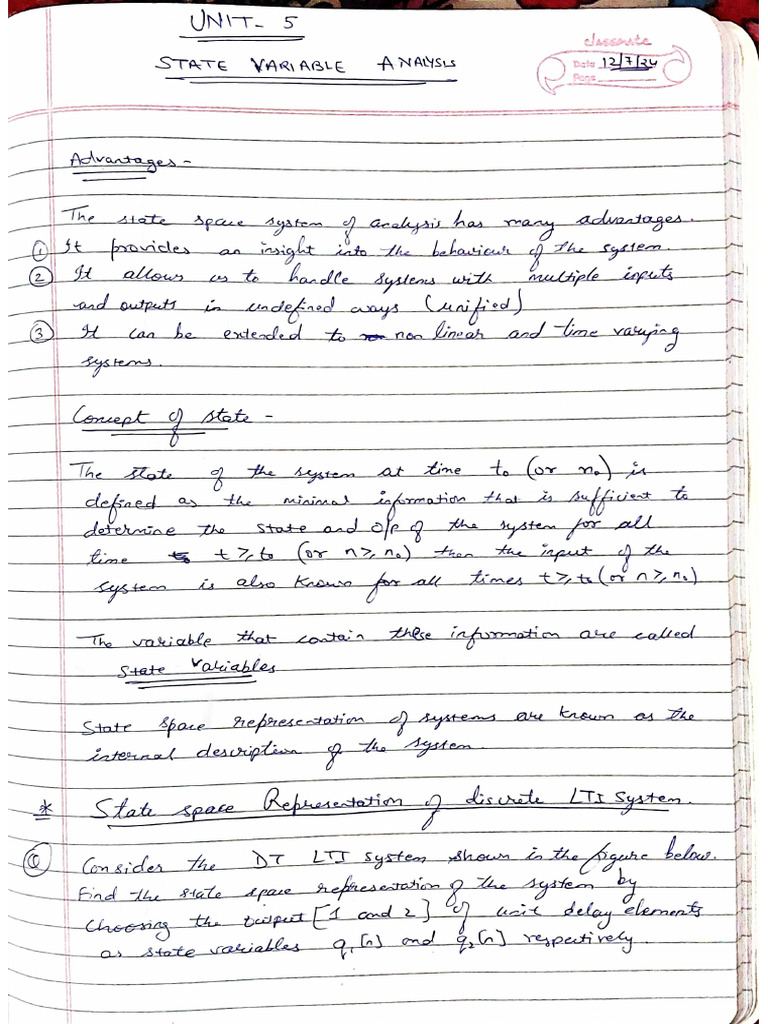 UNIT- 5
classmate
STATE VARIABLE ANALYSIS
Date 12/7/24
Page
Advantages -
The state space system of analysis has many advantages.
① It provides an insight into the behaviour of the system.
② It allows us to handle systems with multiple inputs
and outputs in undefined ways (unified)
③ It can be extended to non linear and time varying
systems.
Concept of state -
The state of the system at time to (or n₀) is
defined as the minimal information that is sufficient to
determine the state and o/p of the system for all
time t ≥ to (or n ≥ n₀) then the input of the
system is also known for all times t ≥ to (or n ≥ n₀)
The variable that contain these information are called
State Variables
State space representation of systems are known as the
internal description of the system.
* State space Representation of discrete LTI System.
Q Consider the DT LTI system shown in the figure below.
Find the state space representation of the system by
choosing the output [1 and 2] of unit delay elements
as state variables q₁[n] and q₂[n] respectively.